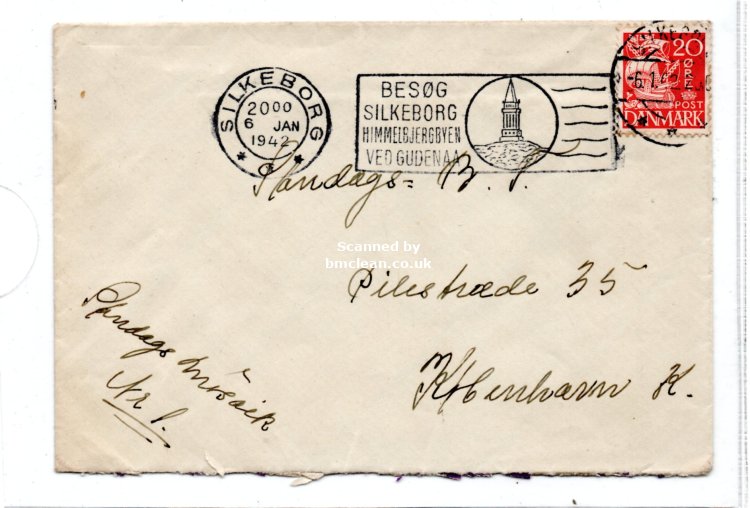 SILKEBORG
20 00
6 JAN
1942
BESØG
SILKEBORG
HIMMELBJERGBYEN
VED GUDENAA
20
ØRE
POST
DANMARK
Mandags= B. T.
Scanned by
bmclean.co.uk
Pilestræde 35
København K.
Mandags Mosaik
Nr 1.